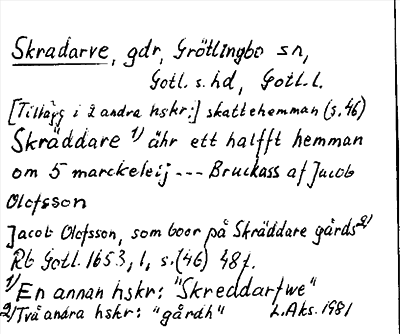 Skradarve, gdr, Grötlingbo sn,
Gotl. s. hd, Gotl. l.
[Tillägg i 2 andra hskr:] skattehemman (s. 46)
Skräddare 1) ähr ett halfft hemman
om 5 marckeleij --- Bruckass af Jacob
Olofsson
Jacob Olofsson, som boor på Skräddare gårds 2)
Rb Gotl. 1653, 1, s. (46) 48 f.
1) En annan hskr: "Skreddarfwe"
2) Två andra hskr: "gårdh" L. Aks. 1981